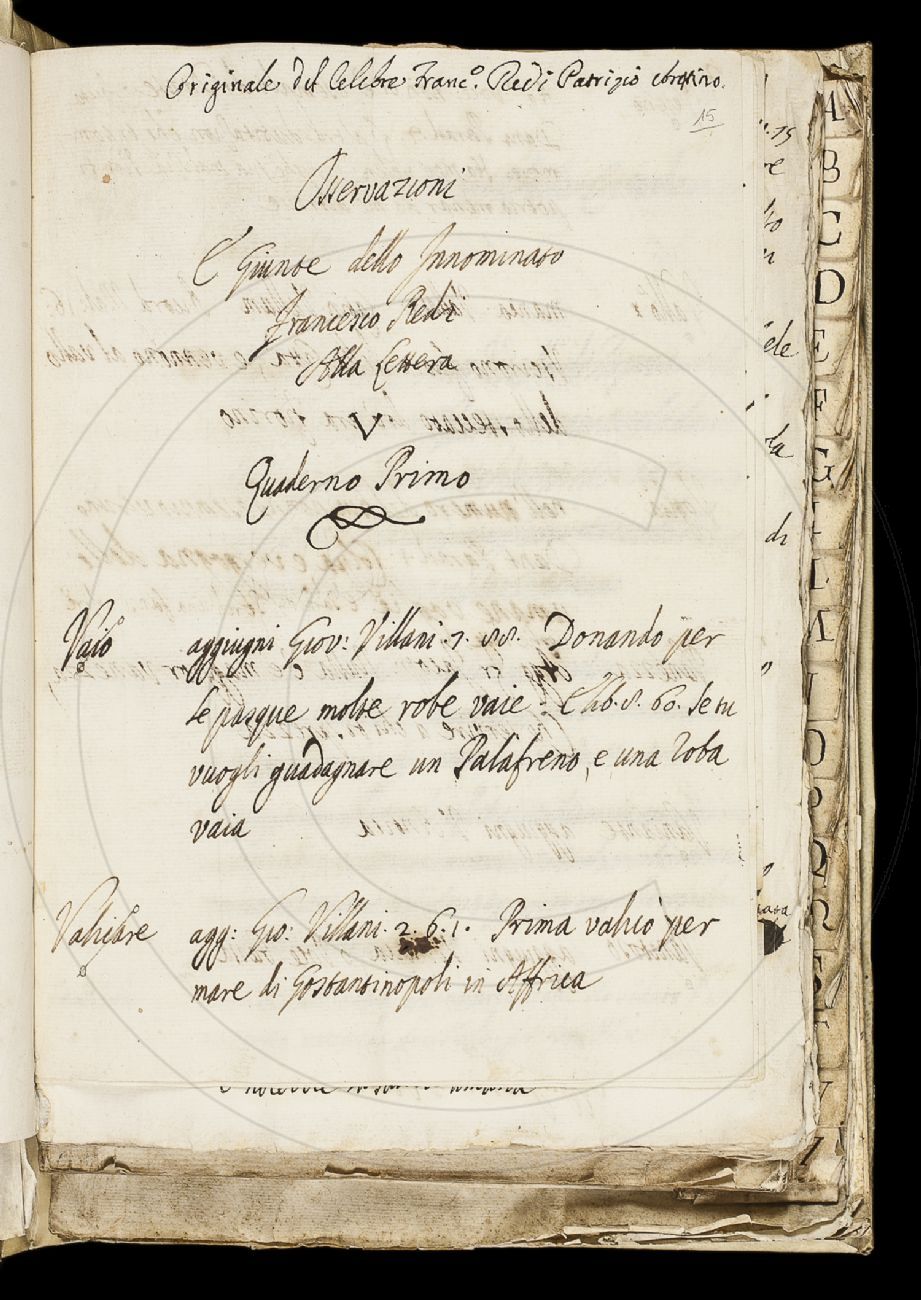 Originale del Celebre Franc.º Redi Patrizio Aretino.
15
Osservazioni
E Giunte dello Innominato
Francesco Redi
Alla Lettera
V
Quaderno Primo
Vaio aggiugni Giov: Villani. 7. 88. Donando per
le pasque molte robe vaie. E lib. 8. 60. se tu
vuogli guadagnare un Palafreno, e una roba
vaia
Valicare agg: Gio. Villani. 2. 6. 1. Prima valicò per
mare di Gostantinopoli in Affrica
A
B
C
D
E
F
G
I
L
M
N
O
P
Q
R
S
T
V
Z